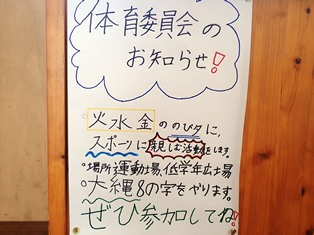 体育委員会の
お知らせ!
火水金ののびタに、
スポーツに親しむ活動をします。
・場所 運動場、低学年広場
・大縄8の字をやります。
ぜひ参加してね!